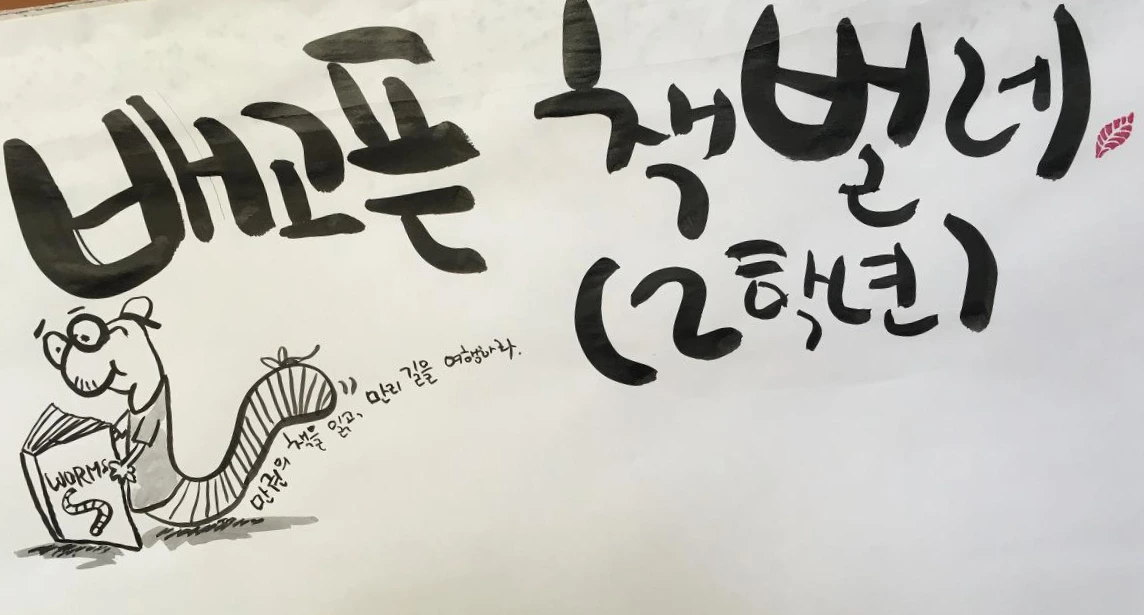 배고픈 책벌레
(2학년)
만권의 책을 읽고, 만리 길을 여행하라.
WORMS